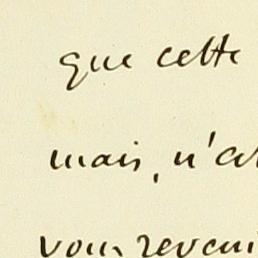 que cette
mais, n'a
vous reveni